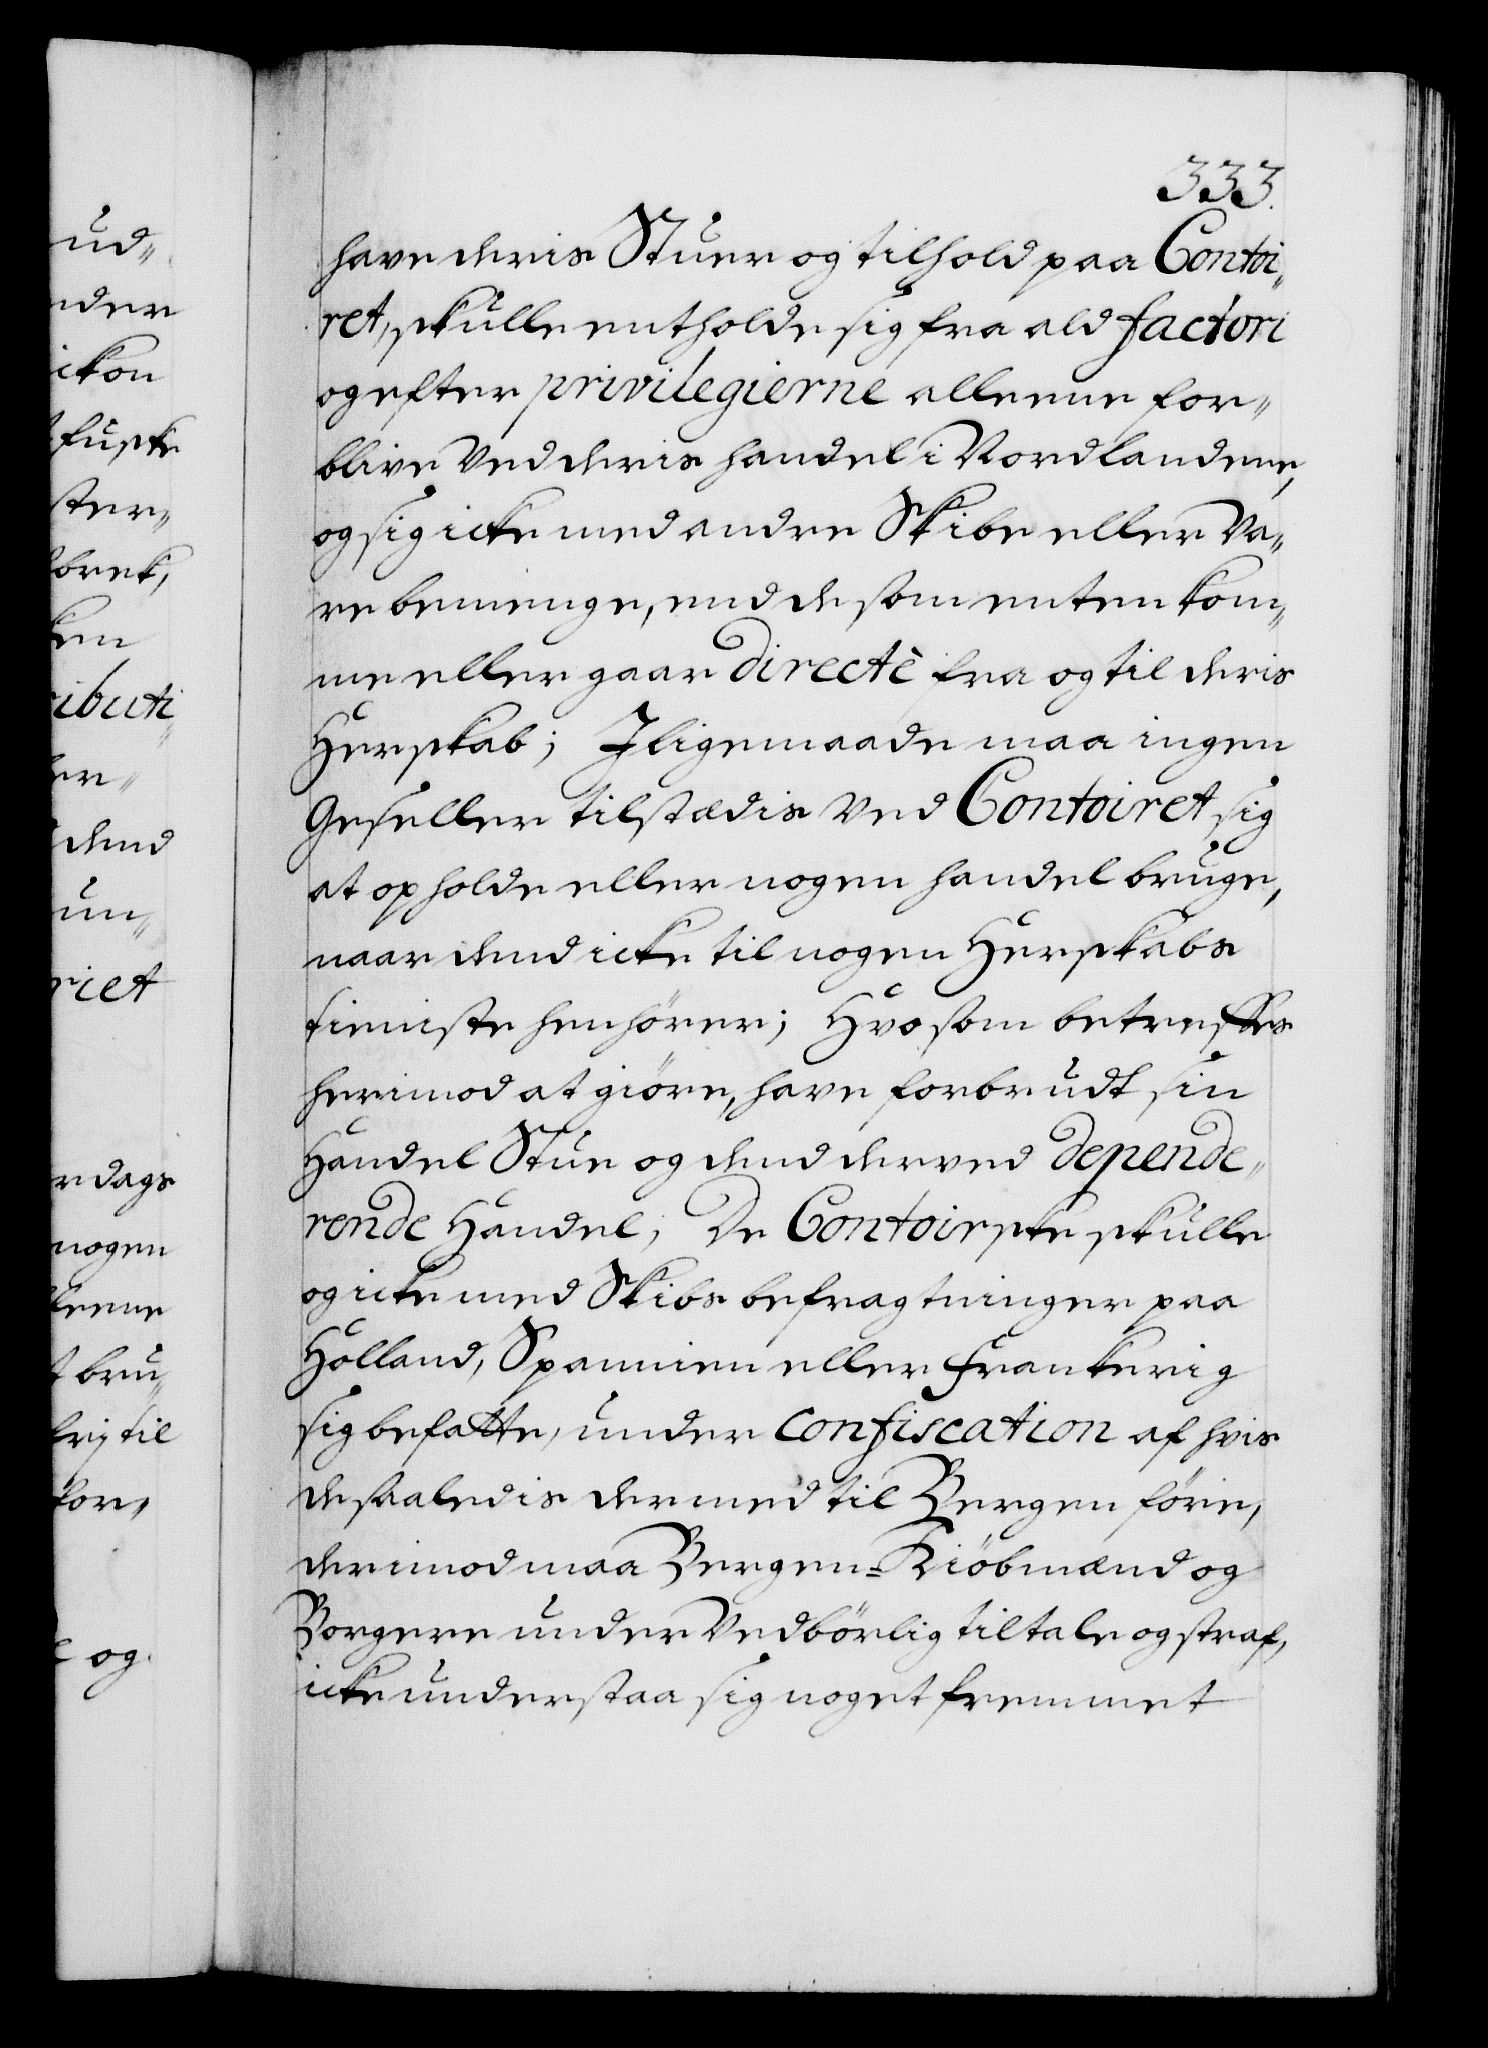 333.
have deris Stuer og tilhold paa Contoi„
ret, skulle entholde sig fra ald factori
og efter privilegierne alleene for„
blive Ved deris handel i Nordlandene,
og sig icke med andre Skibe eller Va„
re bemenge, end de som enten kom„
me eller gaar directè fra og til deris
Herskab; Jligemaade maa ingen
Geseller tilstædis Ved Contoiret sig
at opholde eller nogen handel bruge,
naar dend icke til nogen Herskabs
tieniste henhörer; Hvo som betreffes
herimod at giöre, have forbrudt sin
Handel Stue og dend derved depende„
rende Handel; De Contoirske skulle
og icke med Skibs befragtninger paa
Holland, Spannien eller Franckerig
sig befatte, under confiscation af hvis
de saaledis dermed til Bergen före,
derimod maa Bergens Kiöbmænd og
Borgere under Vedbörlig tiltale og straf,
icke understaa sig noget fremmet
ud„
nder
ster„
ken
ributi„
dend
un„
riet
dags
nogen
leene
bru„
til
for„
og